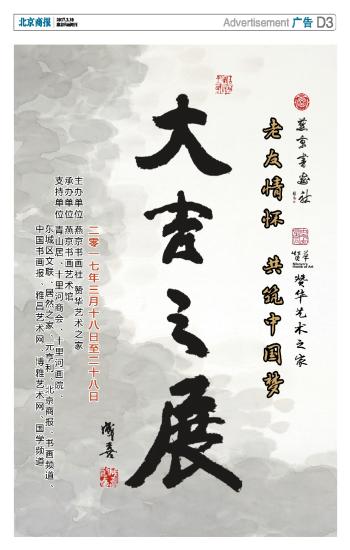 北京商报
2017.3.10
Advertisement 广告 D3
燕京书画社
赞华艺术之家
老友情怀 共筑中国梦
大吉之展
成喜
二零一七年三月十八日至二十八日
主办单位 燕京书画社、赞华艺术之家
承办单位 燕京书画艺术馆
支持单位 青山居、十里河商会、十里河画院、
东城区文联、居然之家、元亨利、北京商报·书画频道、
中国书画报、雅昌艺术网、博雅艺术网、国学频道